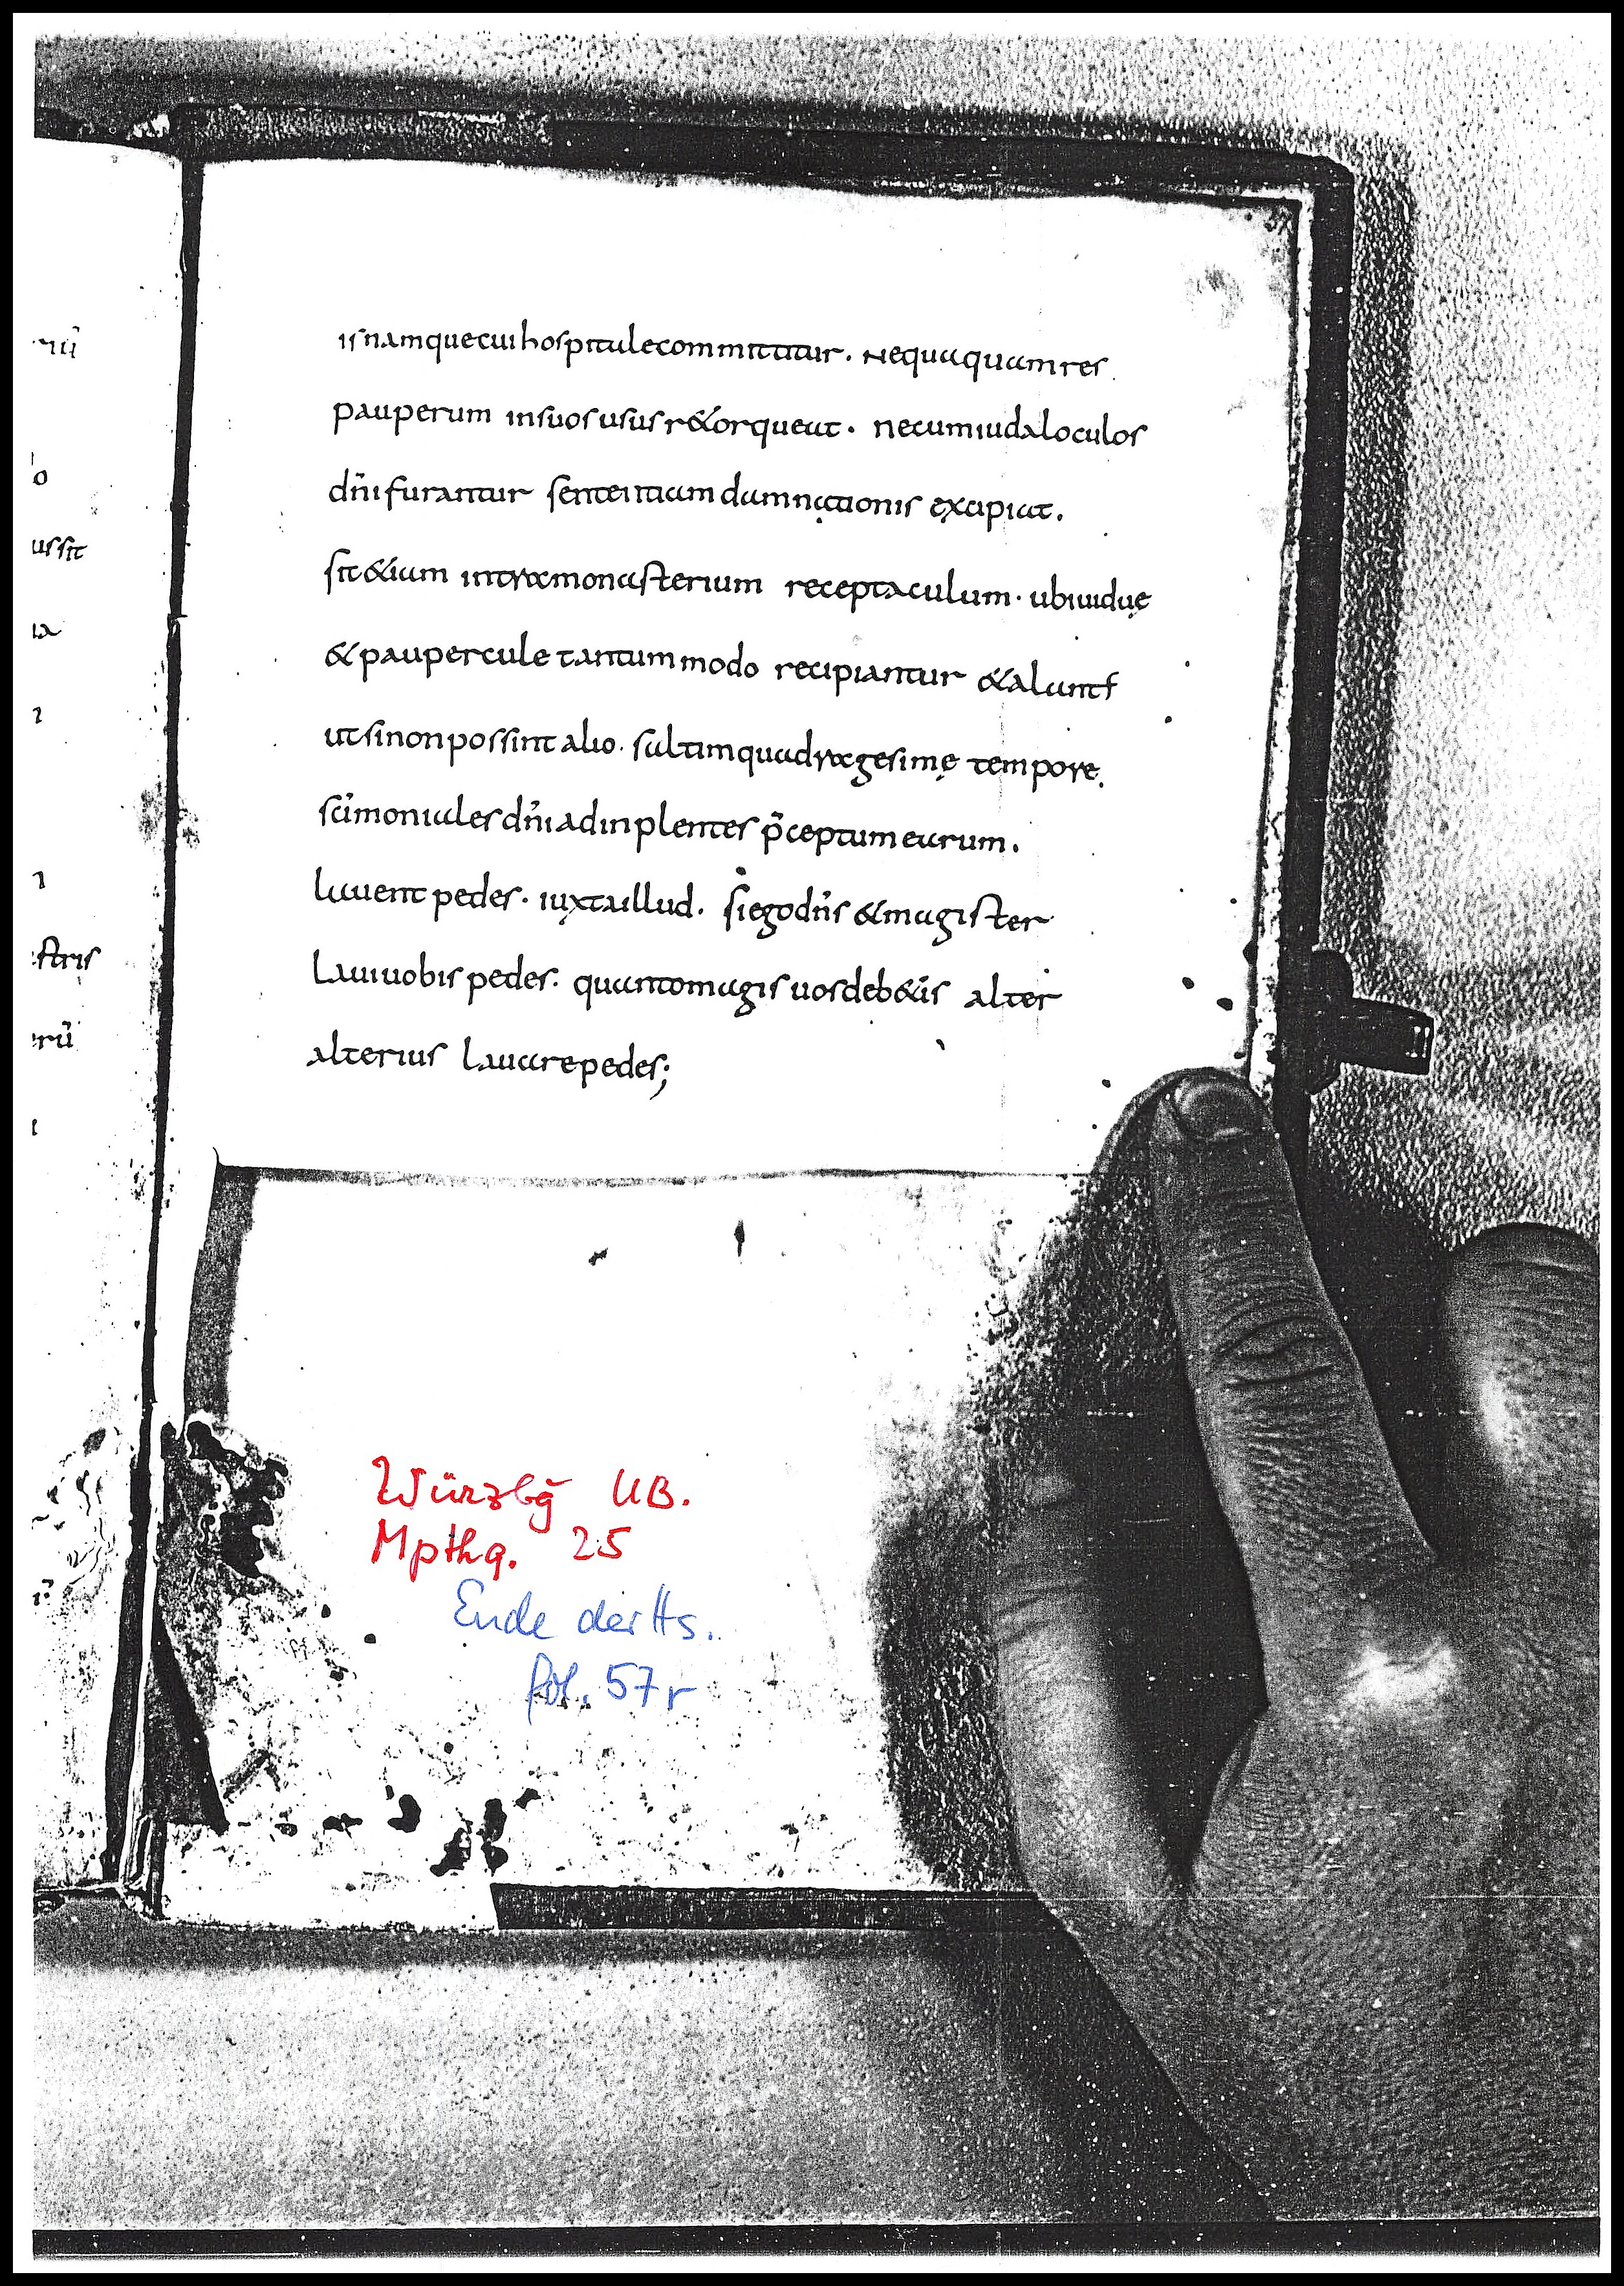 57
isnamquecuihospitalecommittitur. Nequaquamres
pauperum insuosususr&orqueat. necumiudaloculos
dn̄ifurantur sententiamdamnationis excipiat.
sit&iam intraxmonasterium receptaculum. ubiuiduę
&paupercule tantummodo recipiantur &alunt̄
utsinonpossint alio. saltimquadragesimę tempore.
scīmonialesdn̄iadinplentes p̄ceptumearum.
lauent pedes. iuxtaillud. siegodn̄s &magister
Lauiuobispedes. quantomagisuosdeb&is alter
alterius Lauarepedes;
Würzbḡ UB.
Mpthq. 25
Ende der Hs.
fol. 57r